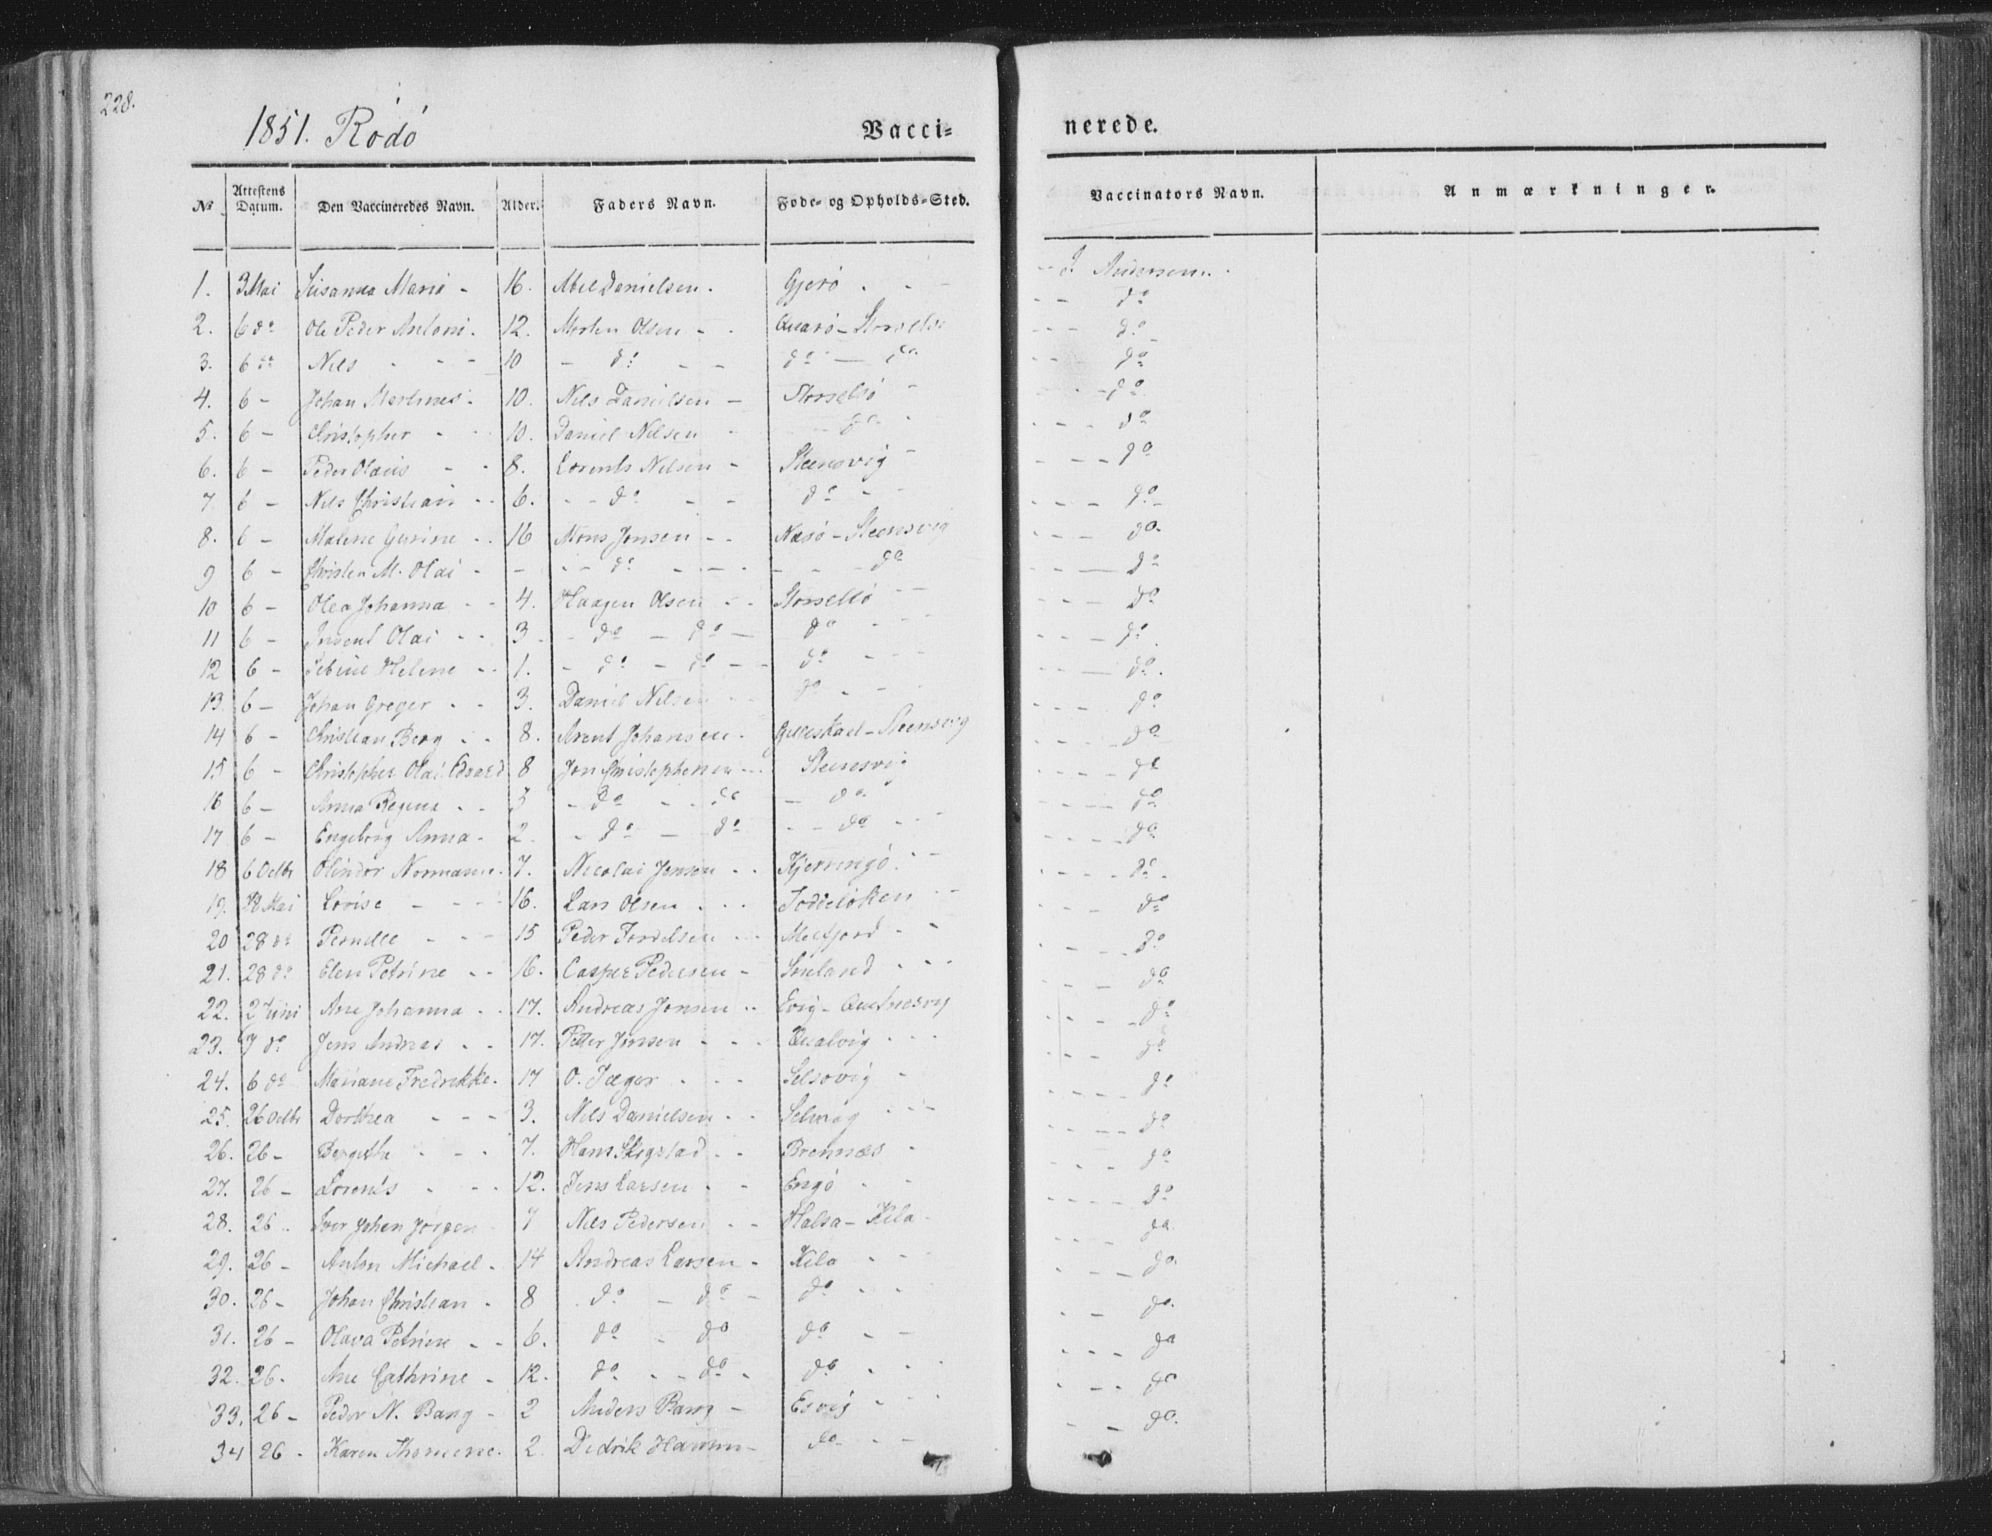 228.
1851. Rödö
Vacci=
nerede.
No Attestens Datum. Den Vaccineredes Navn. Alder. Faders Navn. Føde= og Opholds=Sted. Vaccinators Navn. Anmærkninger.
1. 3 Mai Susanna Maria - 16. Abel Danielsen. Gjerö - - J. Andersen
2. 6 do Ole Peder Antoni. 12. Morten Olsen - - - Storselsö - - do
3. 6 do Nils - - - 10 - do - - do - do - - do
4. 6 - Johan Martinus. 10. Nils Danielsen - Storselsö - - - do
5. 6 - Christopher - - 10. Daniel Nilsen - - do - - - - do
6. 6 - Peder Olaus - - 8. Lorents Nilsen - Steensvig - - - - do
7 6 - Nils Christian - - 6. - - do - - do - - - - - do
8. 6 - Malene Gurine - - 16 Mons Jensen - - Næsö - Steensvig - - - do.
9 6 - Christen M. Olai - - - - do - - - - - - do - - - do
10 6 - Olea Johanna - - 4. Haagen Olsen - - Storselsö - - - - - do
11 6 - Olai - - 3 - do - do - do - - - - - - do
12 6 - Helene - - 1. - do - do - - do - - - - - - do.
13. 6 - Johan Greger - - 3. Daniel Nilsen do - - - - - do
14 6 - Christian Berg - - 8. Arent Johansen - Gilleskaal - Steensvig - - - do
15 6 - Christopher Olai Edvard 8 Jon Christophersen - - Steensvig - - - do
16 6 - Anna Regina - - 5 - do - - do - do - - - - do
17 6 - Engeborg Anna - 2. - do - do - - do - - - - - - do
18 6 Octbr Normann. 7. Nicolai Jensen - - Kjerringö. - - - - - - do.
19. 28 Mai Lovise - - - 16. Lars Olsen - - - - - - - - do
20 28 do Pernille - - - 15 Peder - - Melfjord - - - - do
21. 28 do Elen Petrine - - 16. Casper Pedersen - - - - - - - do
22. 2 Juni Ane Johanna - - 17. Andreas Jensen - - - - - - do
23. 7 do Jens Andreas - - 17. Petter Jensen - - - Qualvig - - - - - - do
24. 6 do Mariane Fredrikke. 17 O. Jæger - - - Selsovig - - - - do
25. 26 Octbr Dorthea - - - 3. Nils Danielsen - - - - - - - - - do
26. 26 - Bergithe - - - 7. Hans Skogstad - - Brennæs - - - - do
27. 26 - Lorents - - - 12. Jens Larsen - - Engö - - - - - - do
28. 26 - Iver Johan Jörgen 7 Nils Pedersen - - Halsa - Kila - - - - - do
29. 26 - Anton Michael - 14 Andreas Larsen - Kila - - - - - - - do
30. 26 - Johan Christian - 8 - do - do - do - - - - do.
31. 26 - Olava Petrine - - 6. do - do do - - - - - do
32. 26. Ane Cathrine - 12. do - - do - do - - - - - - do
33. 26 - Peder N. Bang - 2 Anders Bang - Esvig - - - - - do.
34 26 - Karen Thomine. 2. Didrik Hamm - do - -